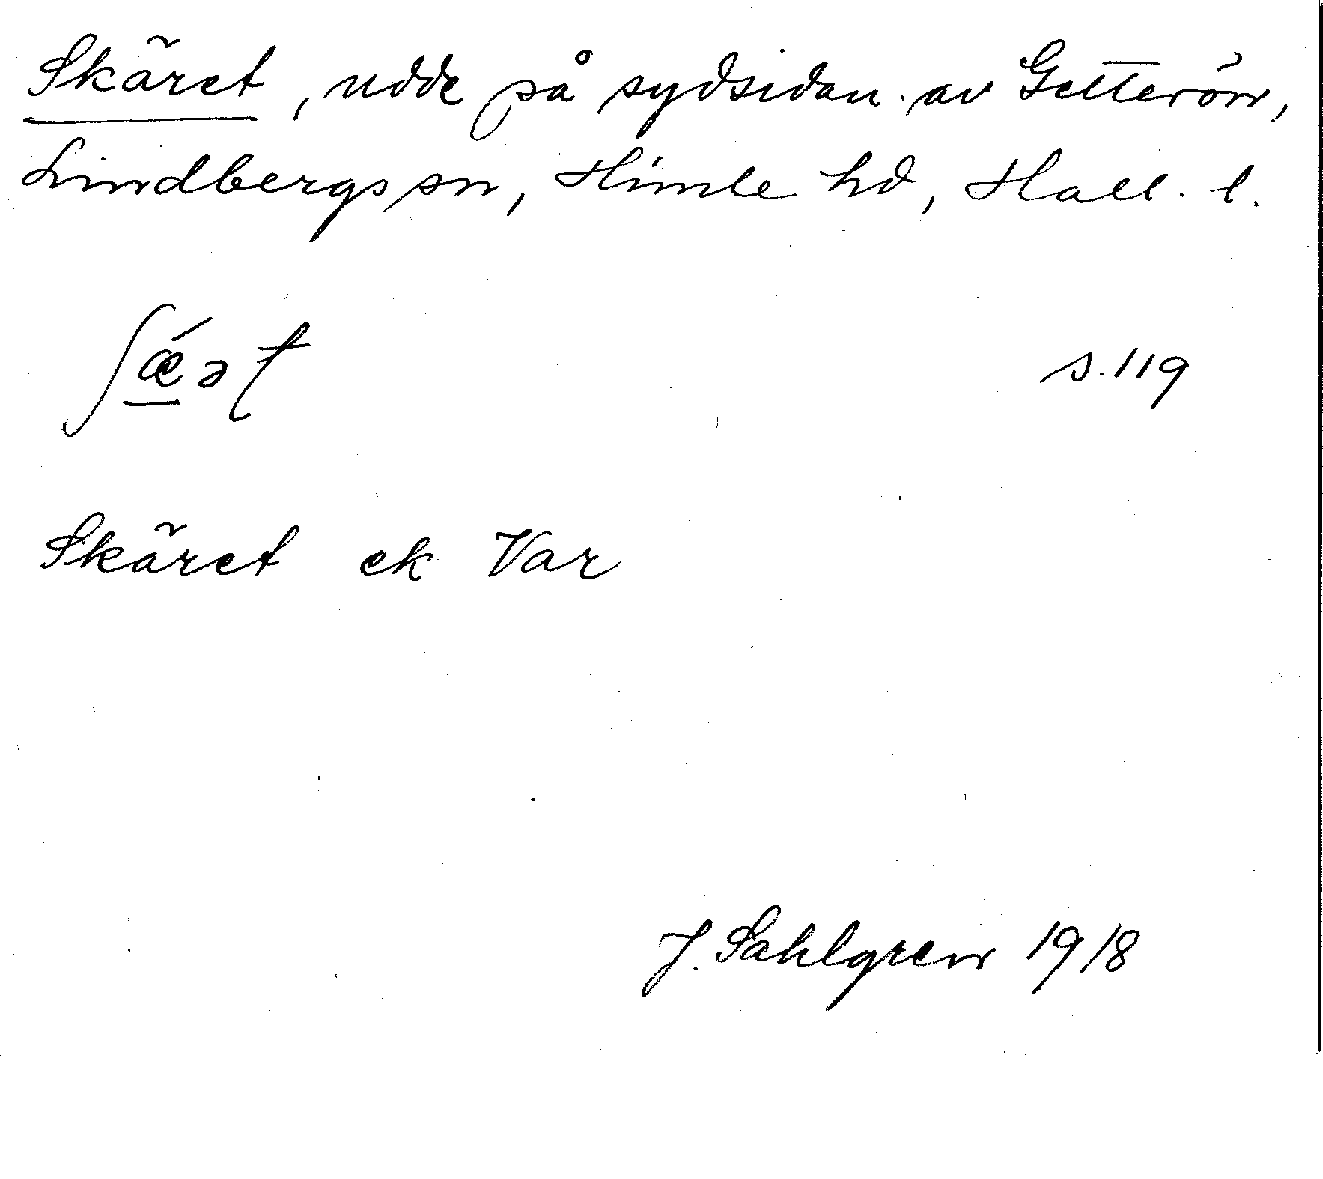 Skäret, udde på sydsidan av Getterön,
Lindbergs sn, Himle hd, Hall. l.
ʃǽət s. 119
Skäret ek Var
J. Sahlgren 1918